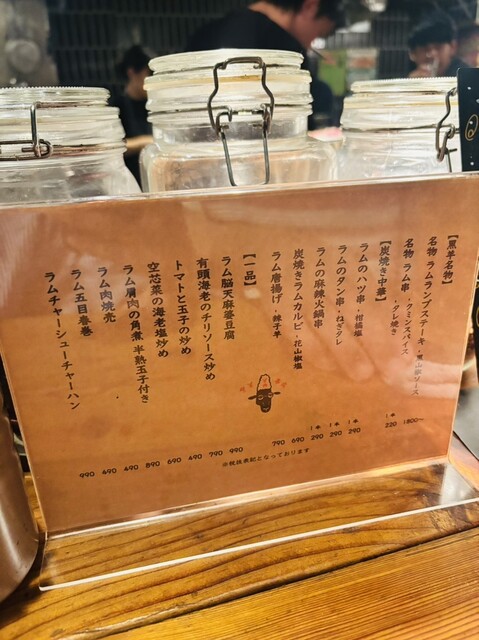 【黒羊名物】
名物 ラムランプステーキ・黒山椒ソース 1800〜
名物 ラム串・クミンスパイス 1本 220
・タレ焼き
【炭焼き中華】
ラムのハツ串・柑橘塩 1本 290
ラムのタン串・ねぎタレ 1本 290
ラムの麻辣火鍋串 1本 290
炭焼きラムカルビ・花山椒塩 690
ラム唐揚げ・辣子羊 790
【一品】
ラム脳天麻婆豆腐 990
有頭海老のチリソース炒め 790
トマトと玉子の炒め 490
空芯菜の海老塩炒め 690
ラム肩肉の角煮 半熟玉子付き 890
ラム肉焼売 490
ラム五目春巻 690
ラムチャーシューチャーハン 990
※税抜表記となっております